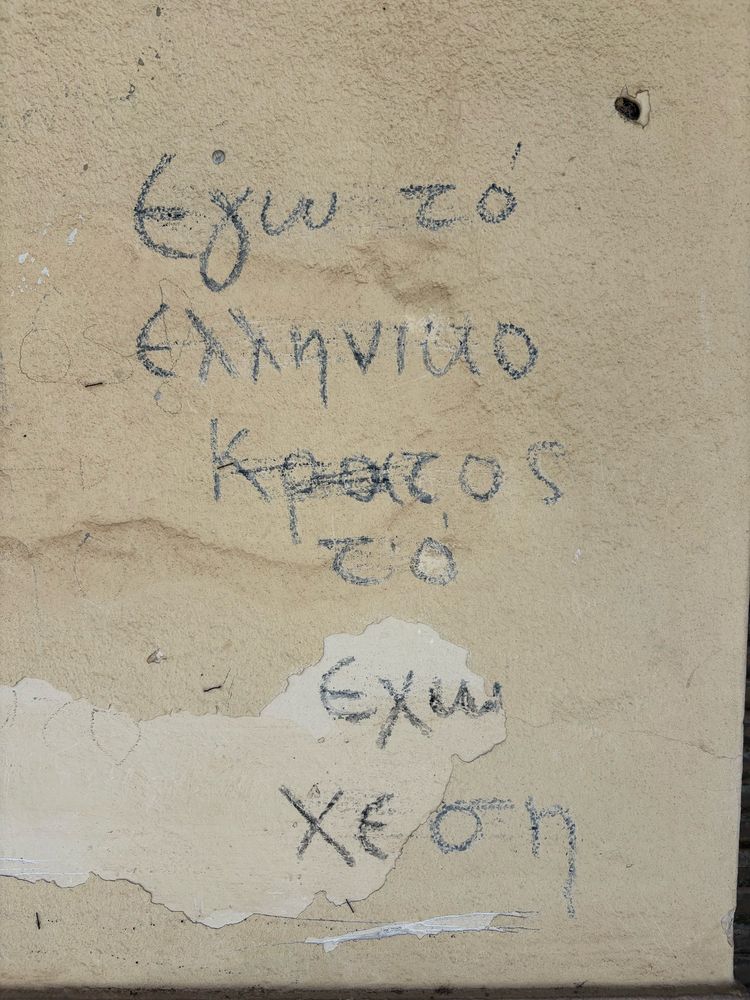 Εγω τό
ελληνικο
Κρατος
τό
εχω
χεση